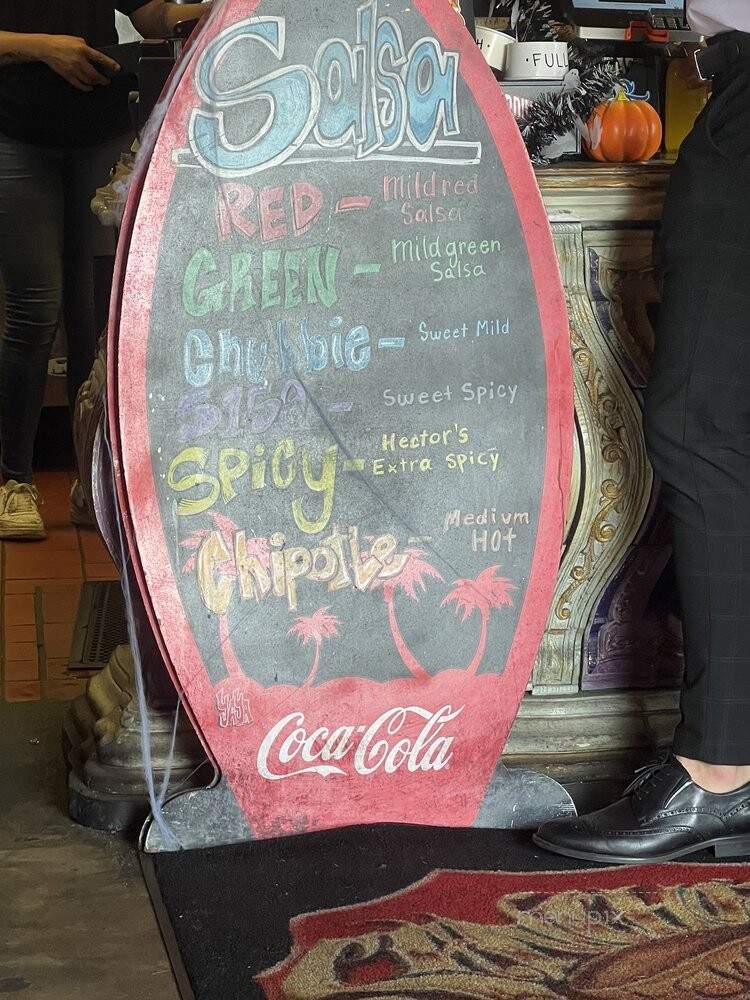 Salsa
RED - Mild red
Salsa
GREEN - Mild green
Salsa
Chubbie - Sweet Mild
S159 - Sweet Spicy
Spicy - Hector's
Extra Spicy
Chipotle - Medium
HOT
Coca-Cola
FULL
menupix